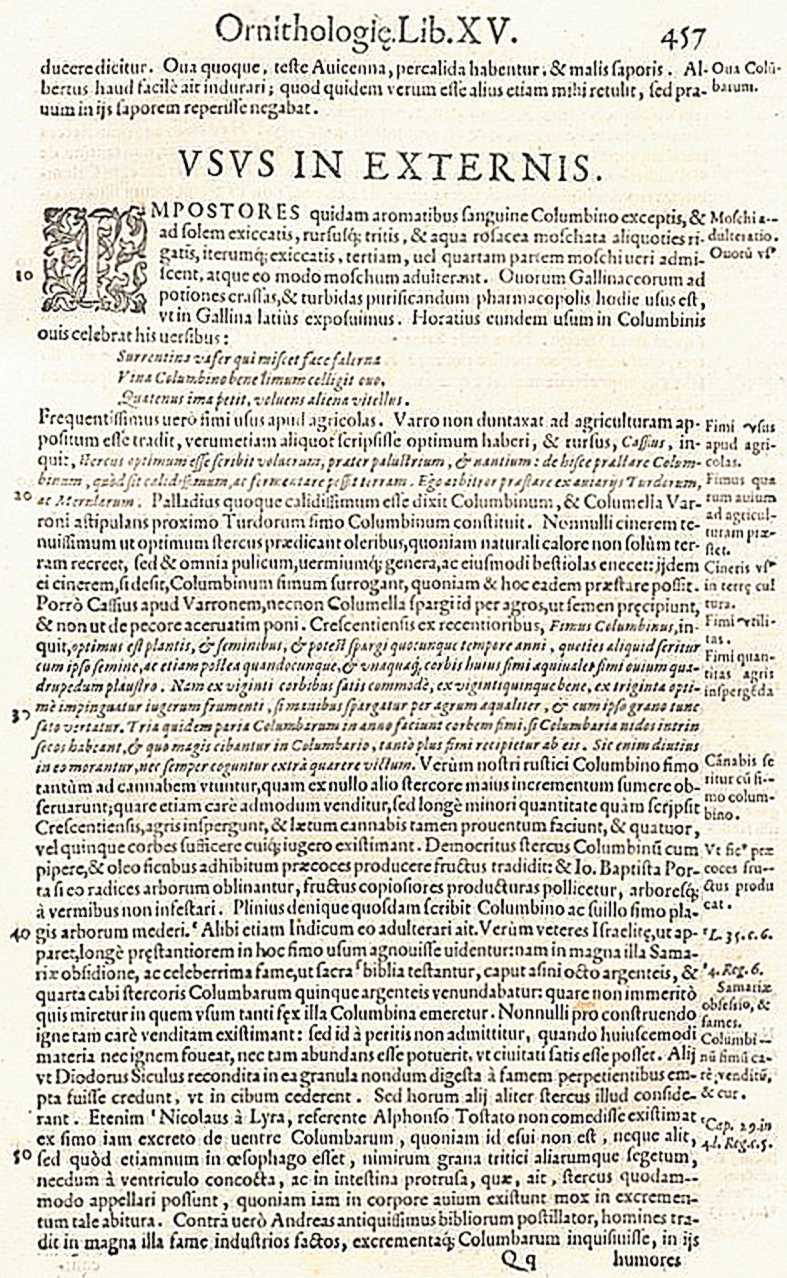 Ornithologię. Lib. XV. 457
ducere dicitur. Oua quoque, teste Auicenna, percalida habentur, & malis saporis. Al-
bertus haud facilè ait indurari; quod quidem verum esse alius etiam mihi retulit, sed pra-
uum in ijs saporem reperisse negabat.
Oua Colũ-
barum.
VSVS IN EXTERNIS.
IMPOSTORES quidam aromatibus sanguine Columbino exceptis, &
ad solem exiccatis, rursusq; tritis, & aqua rosacea moschata aliquoties ri-
gatis, iterumq; exiccatis, tertiam, uel quartam partem moschi ueri admi-
10 scent, atque eo modo moschum adulterant. Ouorum Gallinaceorum ad
potiones crassas, & turbidas purificandum pharmacopolis hodie usus est,
vt in Gallina latiùs exposuimus. Horatius eundem usum in Columbinis
ouis celebrat his uersibus:
Moschi a--
dulteratio.
Ouorũ vsꝰ
Surrentina vafer qui miscet face falerna
Vina Columbino bene limum colligit ouo,
Quatenus ima petit, voluens aliena vitellus.
Frequentissimus uerò fimi usus apud agricolas. Varro non duntaxat ad agriculturam ap-
positum esse tradit, verumetiam aliquot scripsisse optimum haberi, & rursus, Cassius, in-
quit, stercus optimum esse scribit volucrum, præter palustrium, & nantium: de hisce præstare Colum-
binum, quòd sit calidissimum, ac fermentare possit terram. Ego arbitror præstare ex auiarijs Turdorum,
20 ac Merularum. Palladius quoque calidissimum esse dixit Columbinum, & Columella Var-
roni astipulans proximo Turdorum fimo Columbinum constituit. Nonnulli cinerem te-
nuissimum ut optimum stercus prædicant oleribus, quoniam naturali calore non solùm ter-
ram recreet, sed & omnia pulicum, uermiumq; genera, ac eiusmodi bestiolas enecet: ijdem
ei cinerem, si desit, Columbinum fimum surrogant, quoniam & hoc eadem præstare possit.
Porrò Cassius apud Varronem, necnon Columella spargi id per agros, ut semen pręcipiunt,
& non ut de pecore aceruatim poni. Crescentiensis ex recentioribus, Fimus Columbinus, in-
quit, optimus est plantis, & seminibus, & potest spargi quocunque tempore anni, quoties aliquid seritur
cum ipso semine, ac etiam postea quandocunque, & vnaquaq; corbis huius fimi æquiualet fimi ouium qua-
drupedum plaustro. Nam ex viginti corbibus satis commodè, ex vigintiquinque bene, ex triginta opti-
mè impinguatur iugerum frumenti, si manibus spargatur per agrum æqualiter, & cum ipso grano tunc
30 sato vertatur. Tria quidem paria Columbarum in anno faciunt corbem fimi, si Columbaria nidos intrin
secos habeant, & quo magis cibantur in Columbario, tantò plus fimi recipietur ab eis. Sic enim diutius
in eo morantur, nec semper coguntur extrà quærere victum. Verùm nostri rustici Columbino fimo
tantùm ad cannabem vtuntur, quam ex nullo alio stercore maius incrementum sumere ob-
seruarunt; quare etiam carè admodum venditur, sed longè minori quantitate quàm scripsit
Crescentiensis, agris inspergunt, & lætum cannabis tamen prouentum faciunt, & quatuor,
vel quinque corbes sufficere cuiq; iugero existimant. Democritus stercus Columbinũ cum
pipere, & oleo ficubus adhibitum præcoces producere fructus tradidit: & Io. Baptista Por-
ta si eo radices arborum oblinantur, fructus copiosiores producturas pollicetur, arboresq;
à vermibus non infestari. Plinius denique quosdam scribit Columbino ac suillo fimo pla-
40 gis arborum mederi. Alibi etiam Indicum eo adulterari ait. Verùm veteres Israelitę, ut ap-
paret, longè pręstantiorem in hoc fimo usum agnouisse uidentur: nam in magna illa Sama-
riæ obsidione, ac celeberrima fame, ut sacra biblia testantur, caput asini octo argenteis, &
quarta cabi stercoris Columbarum quinque argenteis venundabatur: quare non immeritò
quis miretur in quem vsum tanti fęx illa Columbina emeretur. Nonnulli pro construendo
igne tam carè venditam existimant: sed id à peritis non admittitur, quando huiuscemodi
materia nec ignem foueat, nec tam abundans esse potuerit, vt ciuitati satis esse posset. Alij
vt Diodorus Siculus recondita in ea granula nondum digesta à famem perpetientibus em-
pta fuisse credunt, vt in cibum cederent. Sed horum alij aliter stercus illud conside-
rant. Etenim Nicolaus à Lyra, referente Alphonso Tostato non comedisse existimat
ex fimo iam excreto de uentre Columbarum, quoniam id esui non est, neque alit,
50 sed quòd etiamnum in œsophago esset, nimirum grana tritici aliarumque segetum,
necdum à ventriculo concocta, ac in intestina protrusa, quæ, ait, stercus quodam--
modo appellari possunt, quoniam iam in corpore auium existunt mox in excremen-
tum tale abitura. Contrà uerò Andreas antiquissimus bibliorum postillator, homines tra-
dit in magna illa fame industrios factos, excrementaq; Columbarum inquisiuisse, in ijs
Fimi vsus
apud agri-
colas.
Fimus qua
rum auium
ad agricul-
turam præ-
stet.
Cineris vsꝰ
in terrę cul
tura.
Fimi vtili-
tas.
Fimi quan-
titas agris
inspergẽda
Cãnabis se
ritur cũ fi--
mo colum-
bino.
Vt ficꝰ præ
coces fru--
ctus produ
cat.
L. 35. c. 6.
4. Reg. 6.
Samariæ
obsessio, &
fames.
Columbi--
nũ fimũ ca-
rè venditũ,
& cur.
Cap. 29. in
4. l. Reg. c. 5.
Qq humores